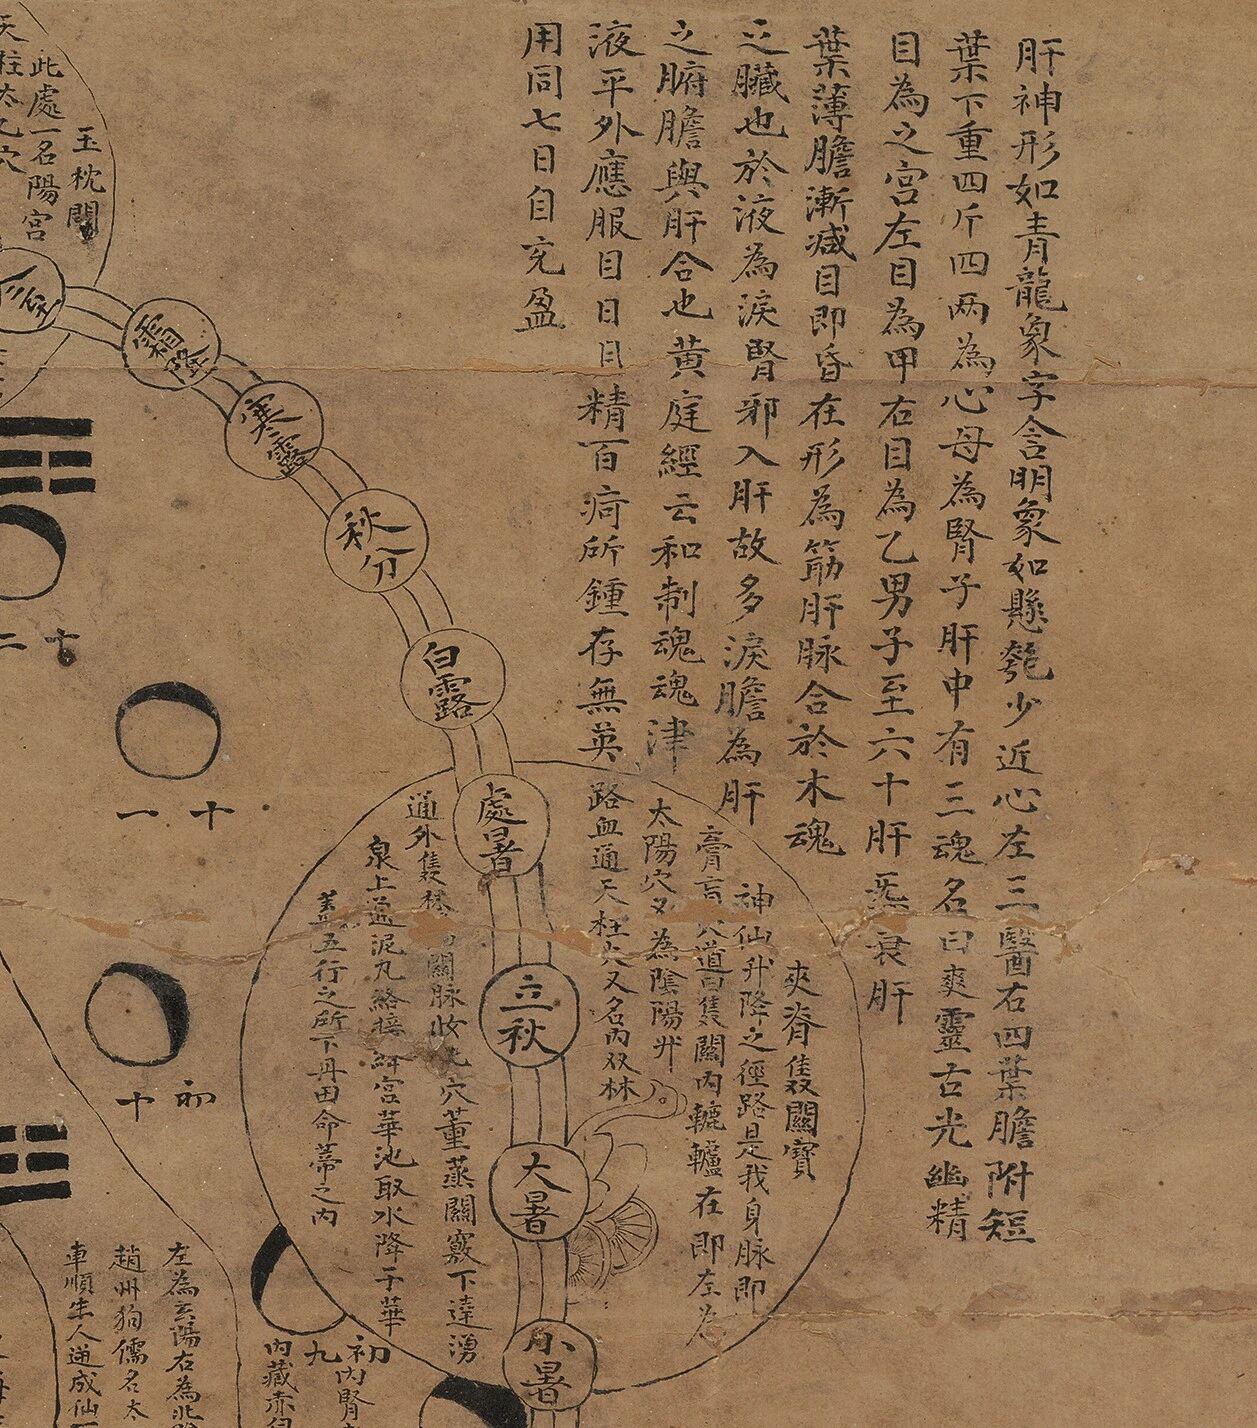 肝神形如青龍象字含明象如懸匏少近心左三醫右四葉膽附短
葉下重四斤四两為心母為腎子肝中有三魂名曰爽靈台光幽精
目為之宮左目為甲右目為乙男子至六十肝炁衰肝
葉薄膽漸减目即昏在形為筋肝脉合於木魂
之臟也於液為淚腎邪入肝故多淚膽為肝
之腑膽與肝合也黄庭經云和制魂魂津
液平外應服目日月精百痾所鍾存無英
用同七日自充盈
夾脊雙關寶
神仙升降之徑路是我身脉即
膏肓穴道曰雙關內轆轤在即左為
太陽穴又為陰陽升
路血通天柱穴又名內双林
通外雙林
關脉妆
穴董蒸關竅下達湧
泉上通泥丸絡
絳宮華池取水降于華
蓋五行之所下丹田命蒂之內
玉枕關
此處一名陽宮
霜降
寒露
秋分
白露
處暑
立秋
大暑
小暑
十二
十一
初十
初九
內腎
內藏赤白
左為玄陽右為牝
趙州狗儒名太
車順牛人逆成仙